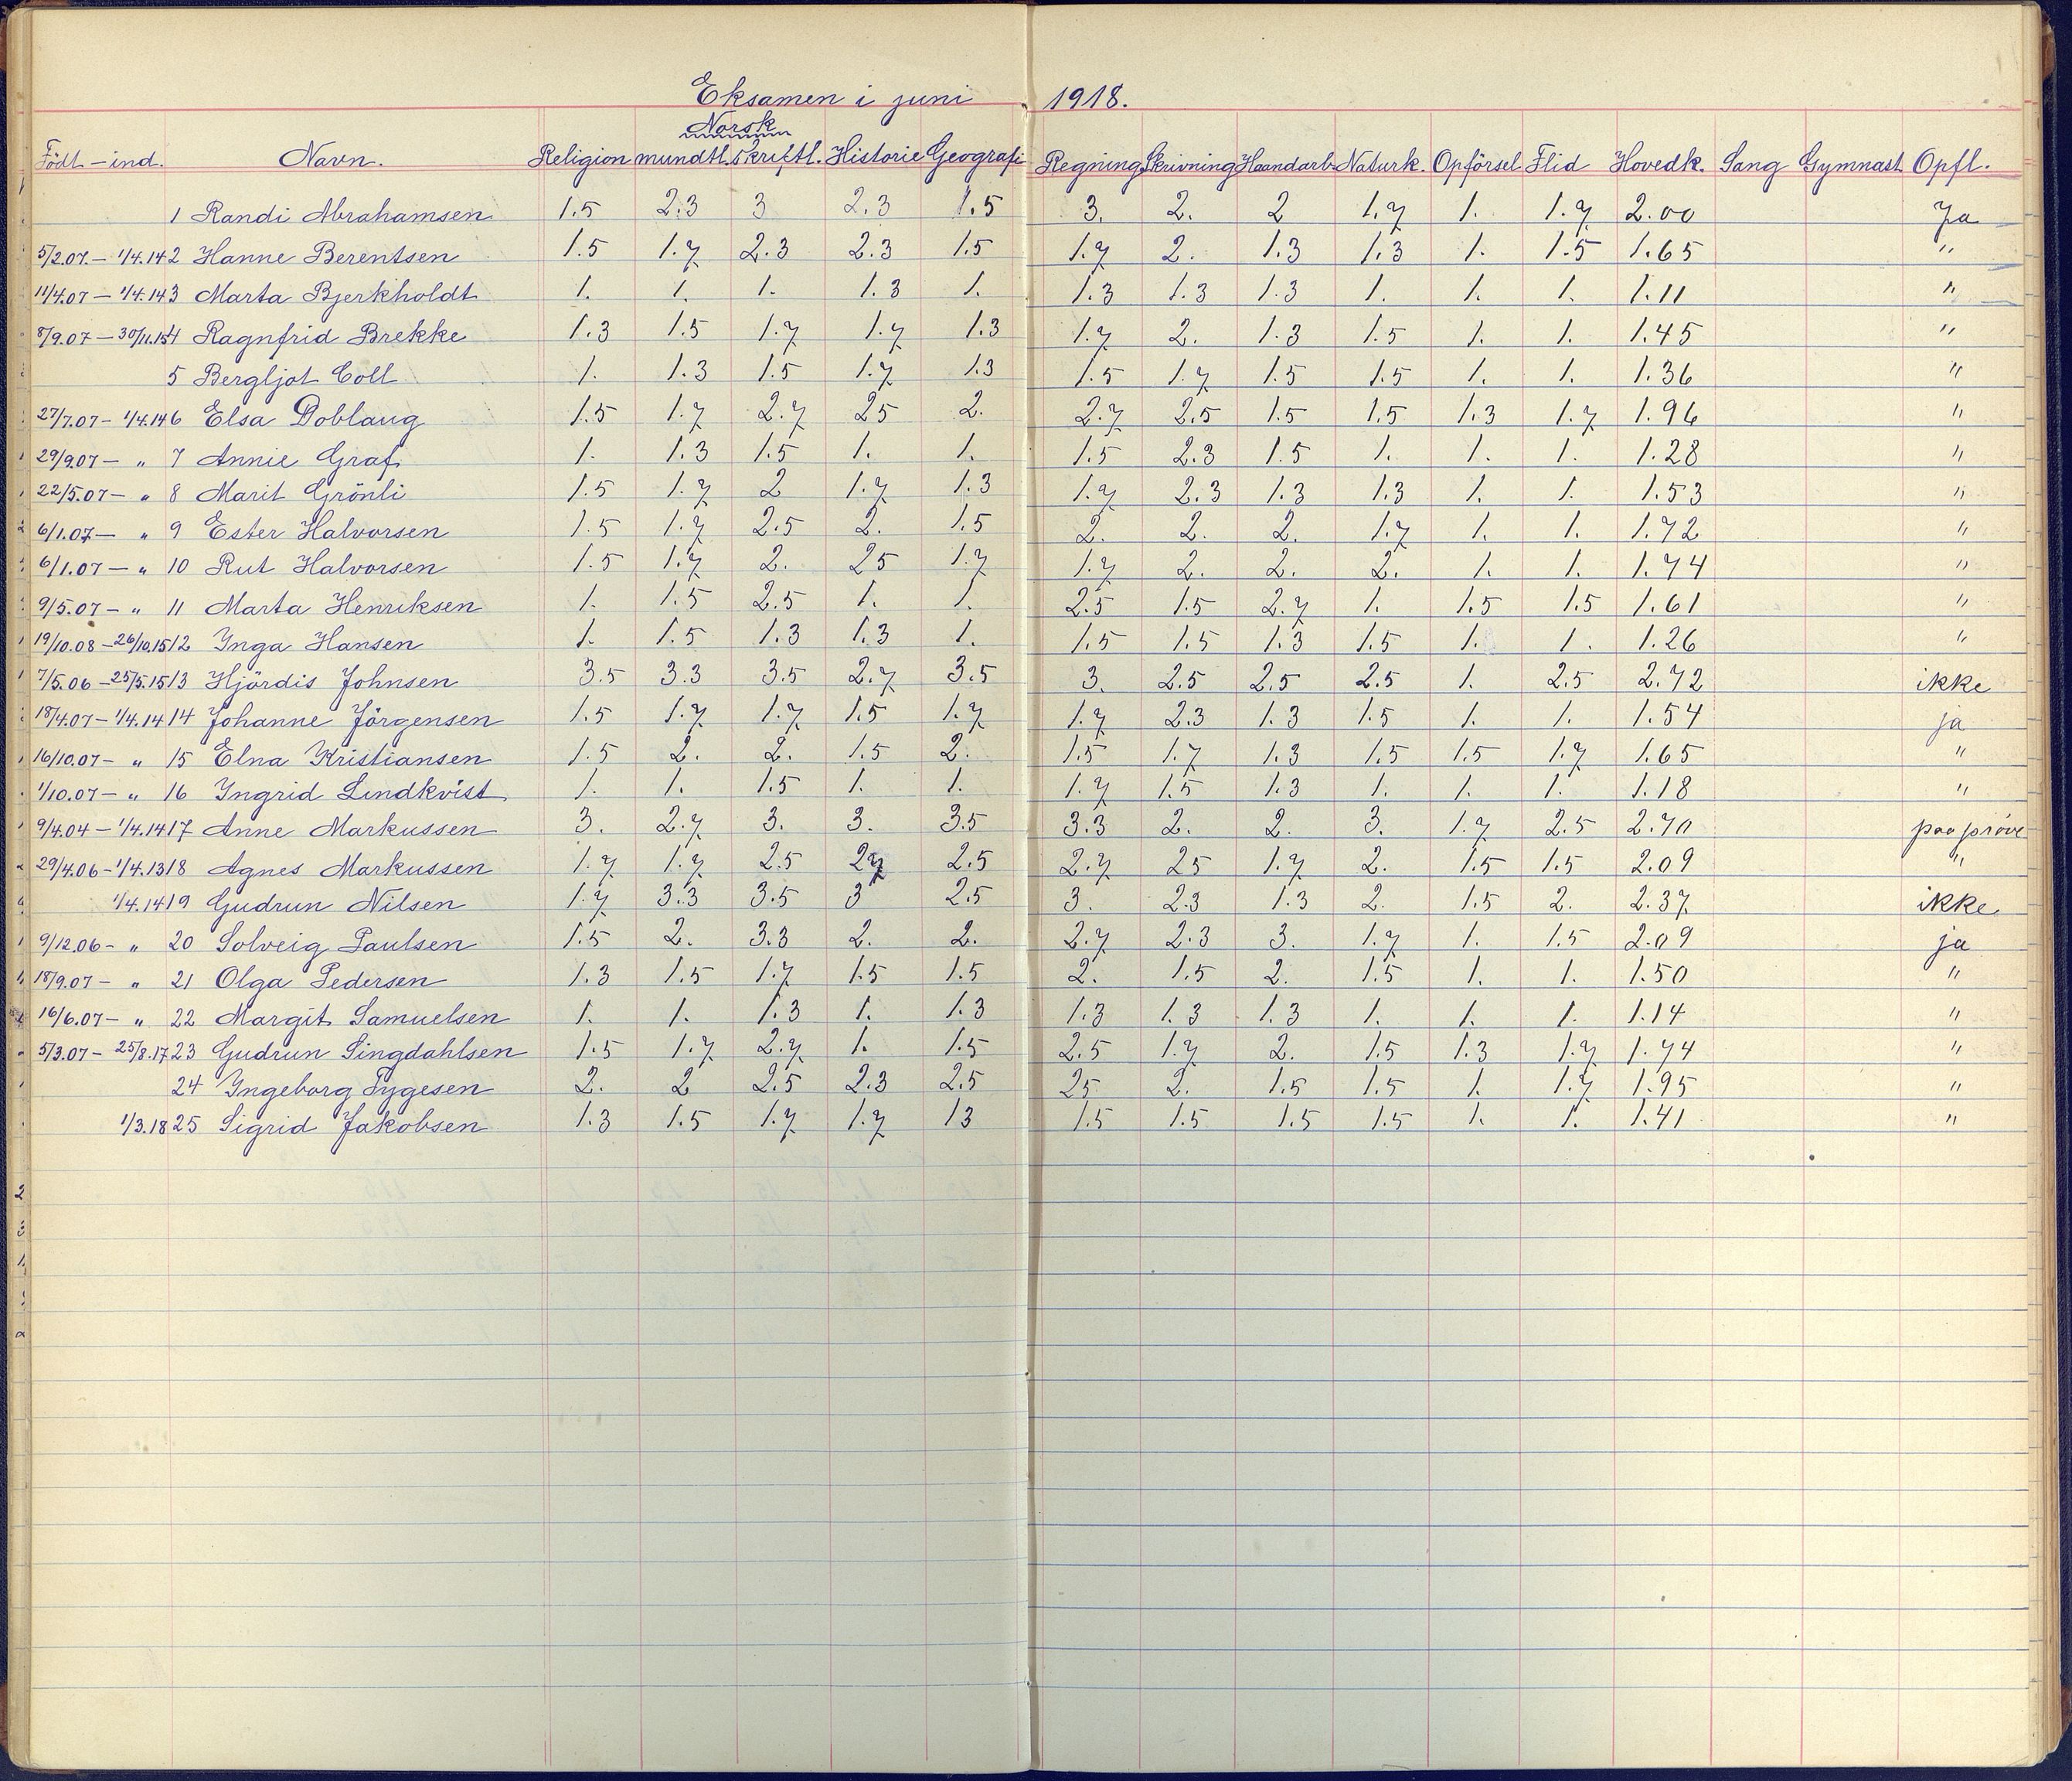 Eksamen i juni 1918.
Norsk
Födt - ind. Navn. Religion mundtl. skriftl. Historie Geografi Regning Skrivning Haandarb. Naturk. Opförsel Flid Hovedk. Sang Gymnast Opfl.
1 Randi Abrahamsen 1.5 2.3 3 2.3 1.5 3. 2. 2 1.7 1. 1.7 2.00 Ja
5/2.07. - 1/4.14 2 Hanne Berentsen 1.5 1.7 2.3 2.3 1.5 1.7 2. 1.3 1.3 1. 1.5 1.65 "
11/4.07 - 1/4.14 3 Marta Bjerkholdt 1. 1. 1. 1.3 1. 1.3 1.3 1.3 1. 1. 1. 1.11 "
8/9.07 - 30/11.15 4 Ragnfrid Brekke 1.3 1.5 1.7 1.7 1.3 1.7 2. 1.3 1.5 1. 1. 1.45 "
5 Bergljot Coll 1. 1.3 1.5 1.7 1.3 1.5 1.7 1.5 1.5 1. 1. 1.36 "
27/7.07 - 1/4.14 6 Elsa Doblaug 1.5 1.7 2.7 25 2. 2.7 2.5 1.5 1.5 1.3 1.7 1.96 "
29/9.07 - " 7 Annie Graf 1. 1.3 1.5 1. 1. 1.5 2.3 1.5 1. 1. 1. 1.28 "
22/5.07 - " 8 Marit Grönli 1.5 1.7 2 1.7 1.3 1.7 2.3 1.3 1.3 1. 1. 1.53 "
6/1.07 - " 9 Ester Halvorsen 1.5 1.7 2.5 2. 1.5 2. 2. 2. 1.7 1. 1. 1.72 "
6/1.07 - " 10 Rut Halvorsen 1.5 1.7 2. 25 1.7 1.7 2. 2. 2. 1. 1. 1.74 "
9/5.07 - " 11 Marta Henriksen 1. 1.5 2.5 1. 1. 2.5 1.5 2.7 1. 1.5 1.5 1.61 "
19/10.08 - 26/10.15 12 Inga Hansen 1. 1.5 1.3 1.3 1. 1.5 1.5 1.3 1.5 1. 1. 1.26 "
7/5.06 - 25/5.15 13 Hjördis Johnsen 3.5 3.3 3.5 2.7 3.5 3. 2.5 2.5 2.5 1. 2.5 2.72 ikke
18/4.07 - 1/4.14 14 Johanne Jörgensen 1.5 1.7 1.7 1.5 1.7 1.7 2.3 1.3 1.5 1. 1. 1.54 ja
16/10.07 - " 15 Elna Kristiansen 1.5 2. 2. 1.5 2. 1.5 1.7 1.3 1.5 1.5 1.7 1.65 "
1/10.07 - " 16 Ingrid Lindkvist 1. 1. 1.5 1. 1. 1.7 1.5 1.3 1. 1. 1. 1.18 "
9/4.04 - 1/4.14 17 Anne Markussen 3. 2.7 3. 3. 3.5 3.3 2. 2. 3. 1.7 2.5 2.70 paa pröve
29/4.06 - 1/4.13 18 Agnes Markussen 1.7 1.7 2.5 27 2.5 2.7 25 1.7 2. 1.5 1.5 2.09 "
1/4.14 19 Gudrun Nilsen 1.7 3.3 3.5 3 2.5 3. 2.3 1.3 2. 1.5 2. 2.37 ikke
9/12.06 - " 20 Solveig Paulsen 1.5 2. 3.3 2. 2. 2.7 2.3 3. 1.7 1. 1.5 2.09 ja
18/9.07 - " 21 Olga Pedersen 1.3 1.5 1.7 1.5 1.5 2. 1.5 2. 1.5 1. 1. 1.50 "
16/6.07 - " 22 Margit Samuelsen 1. 1. 1.3 1. 1.3 1.3 1.3 1.3 1. 1. 1. 1.14 "
5/3.07 - 25/8.17 23 Gudrun Singdahlsen 1.5 1.7 2.7 1. 1.5 2.5 1.7 2. 1.5 1.3 1.7 1.74 "
24 Ingeborg Tygesen 2. 2 2.5 2.3 2.5 25 2. 1.5 1.5 1. 1.7 1.95 "
1/3.18 25 Sigrid Jakobsen 1.3 1.5 1.7 1.7 13 1.5 1.5 1.5 1.5 1. 1. 1.41 "